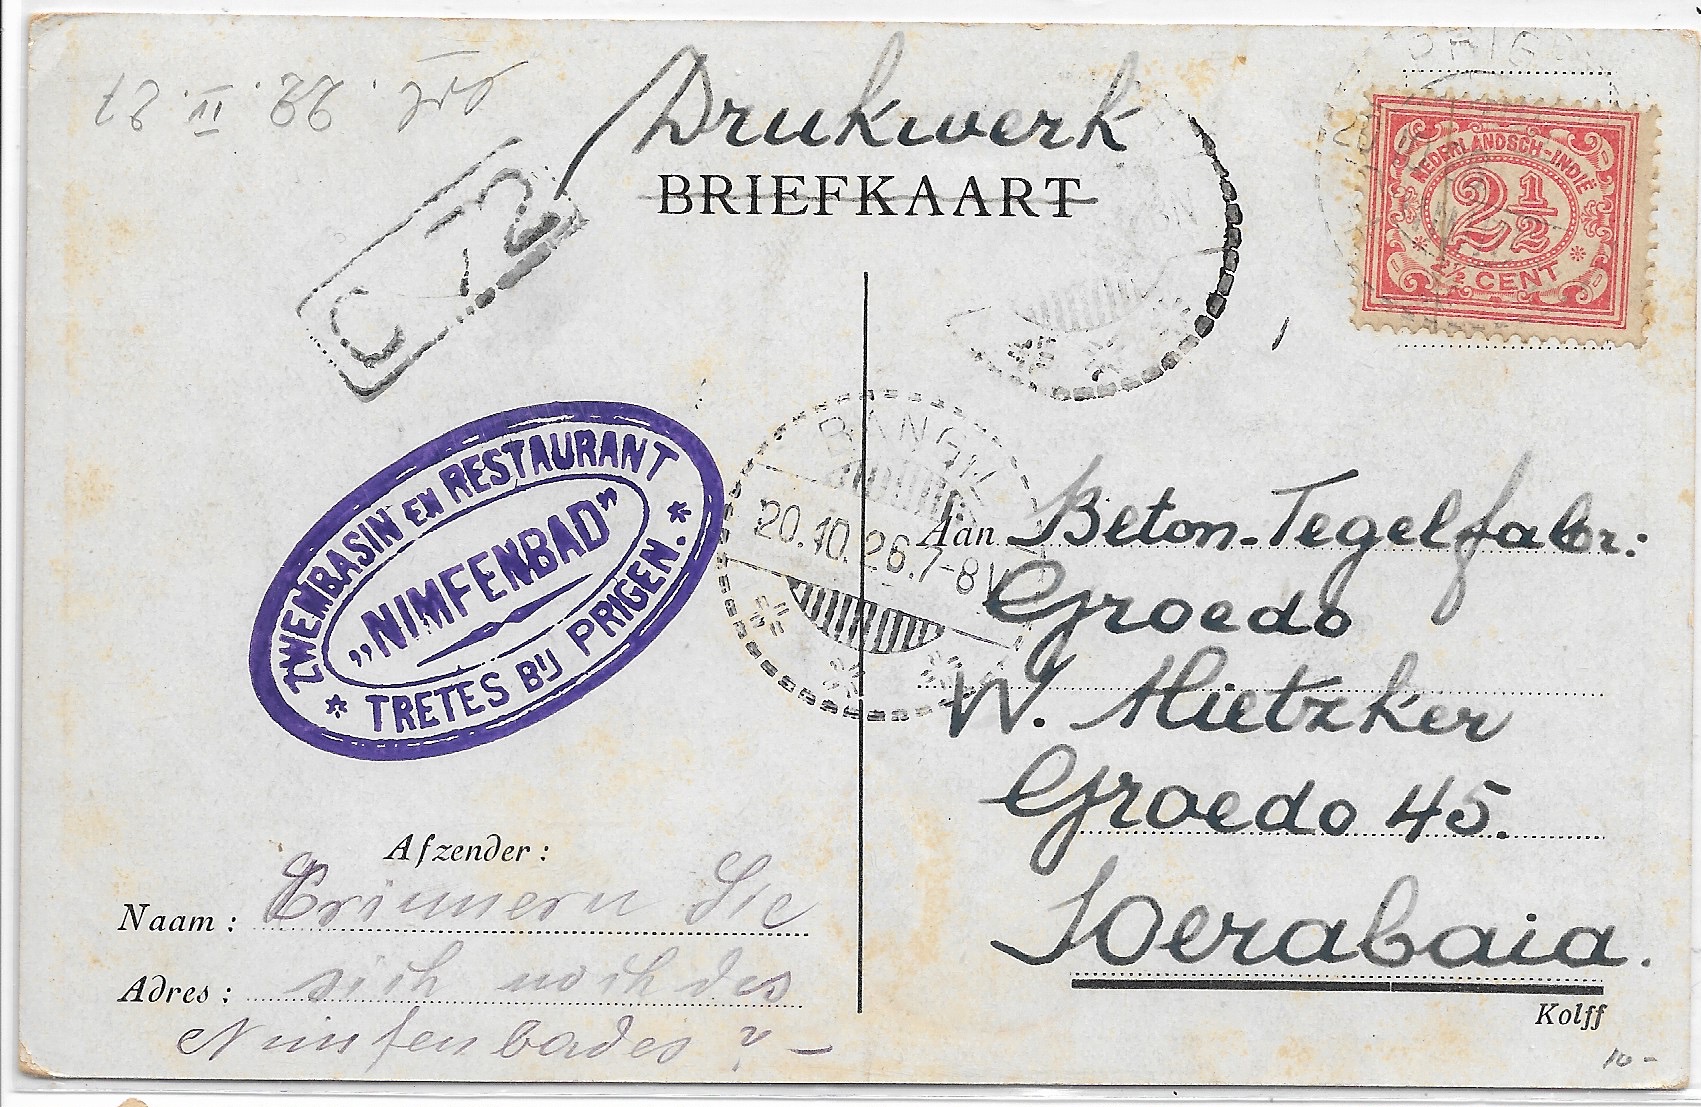 Drukwerk
BRIEFKAART
NEDERLANDSCH-INDIË
2½
2½ CENT
C 73
ZWEMBASIN EN RESTAURANT
„NIMFENBAD”
TRETES BIJ PRIGEN.
20.10.26.7-8V
Aan Beton-Tegelfabr:
Groedo
W. Mietzker
Groedo 45.
Soerabaia.
Kolff
Afzender:
Naam: Erinnern Sie
Adres: sich noch des
Nimfenbades? —
10-